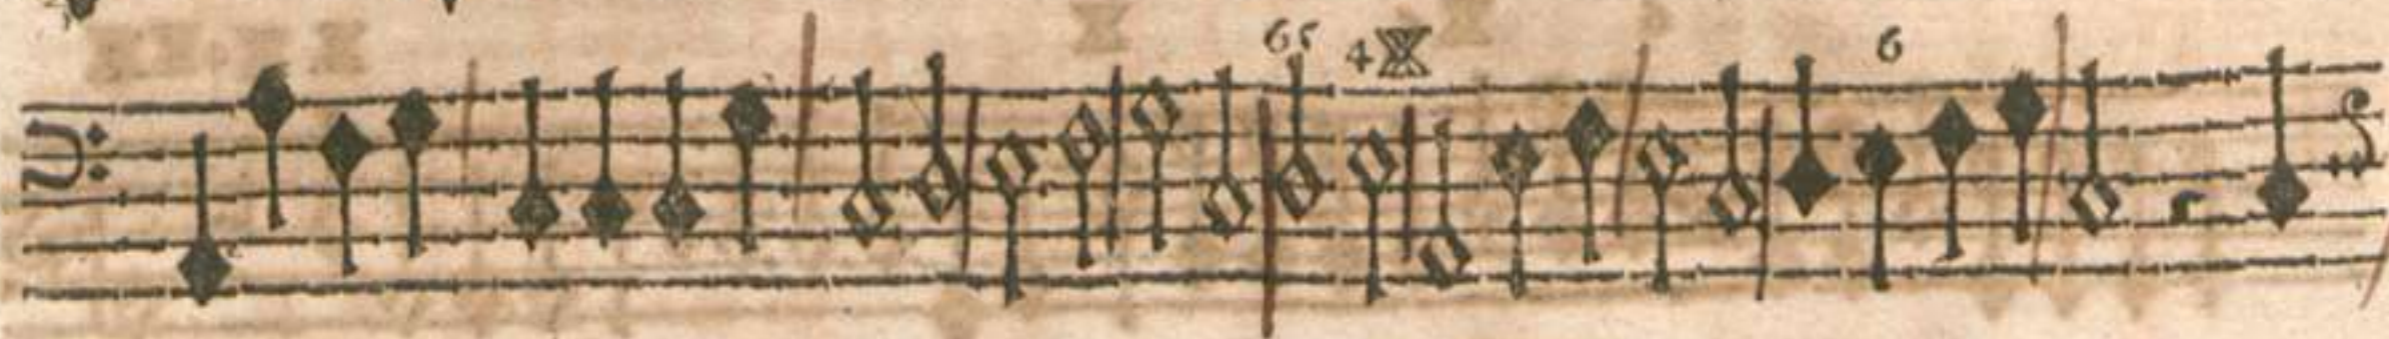 65 4 6